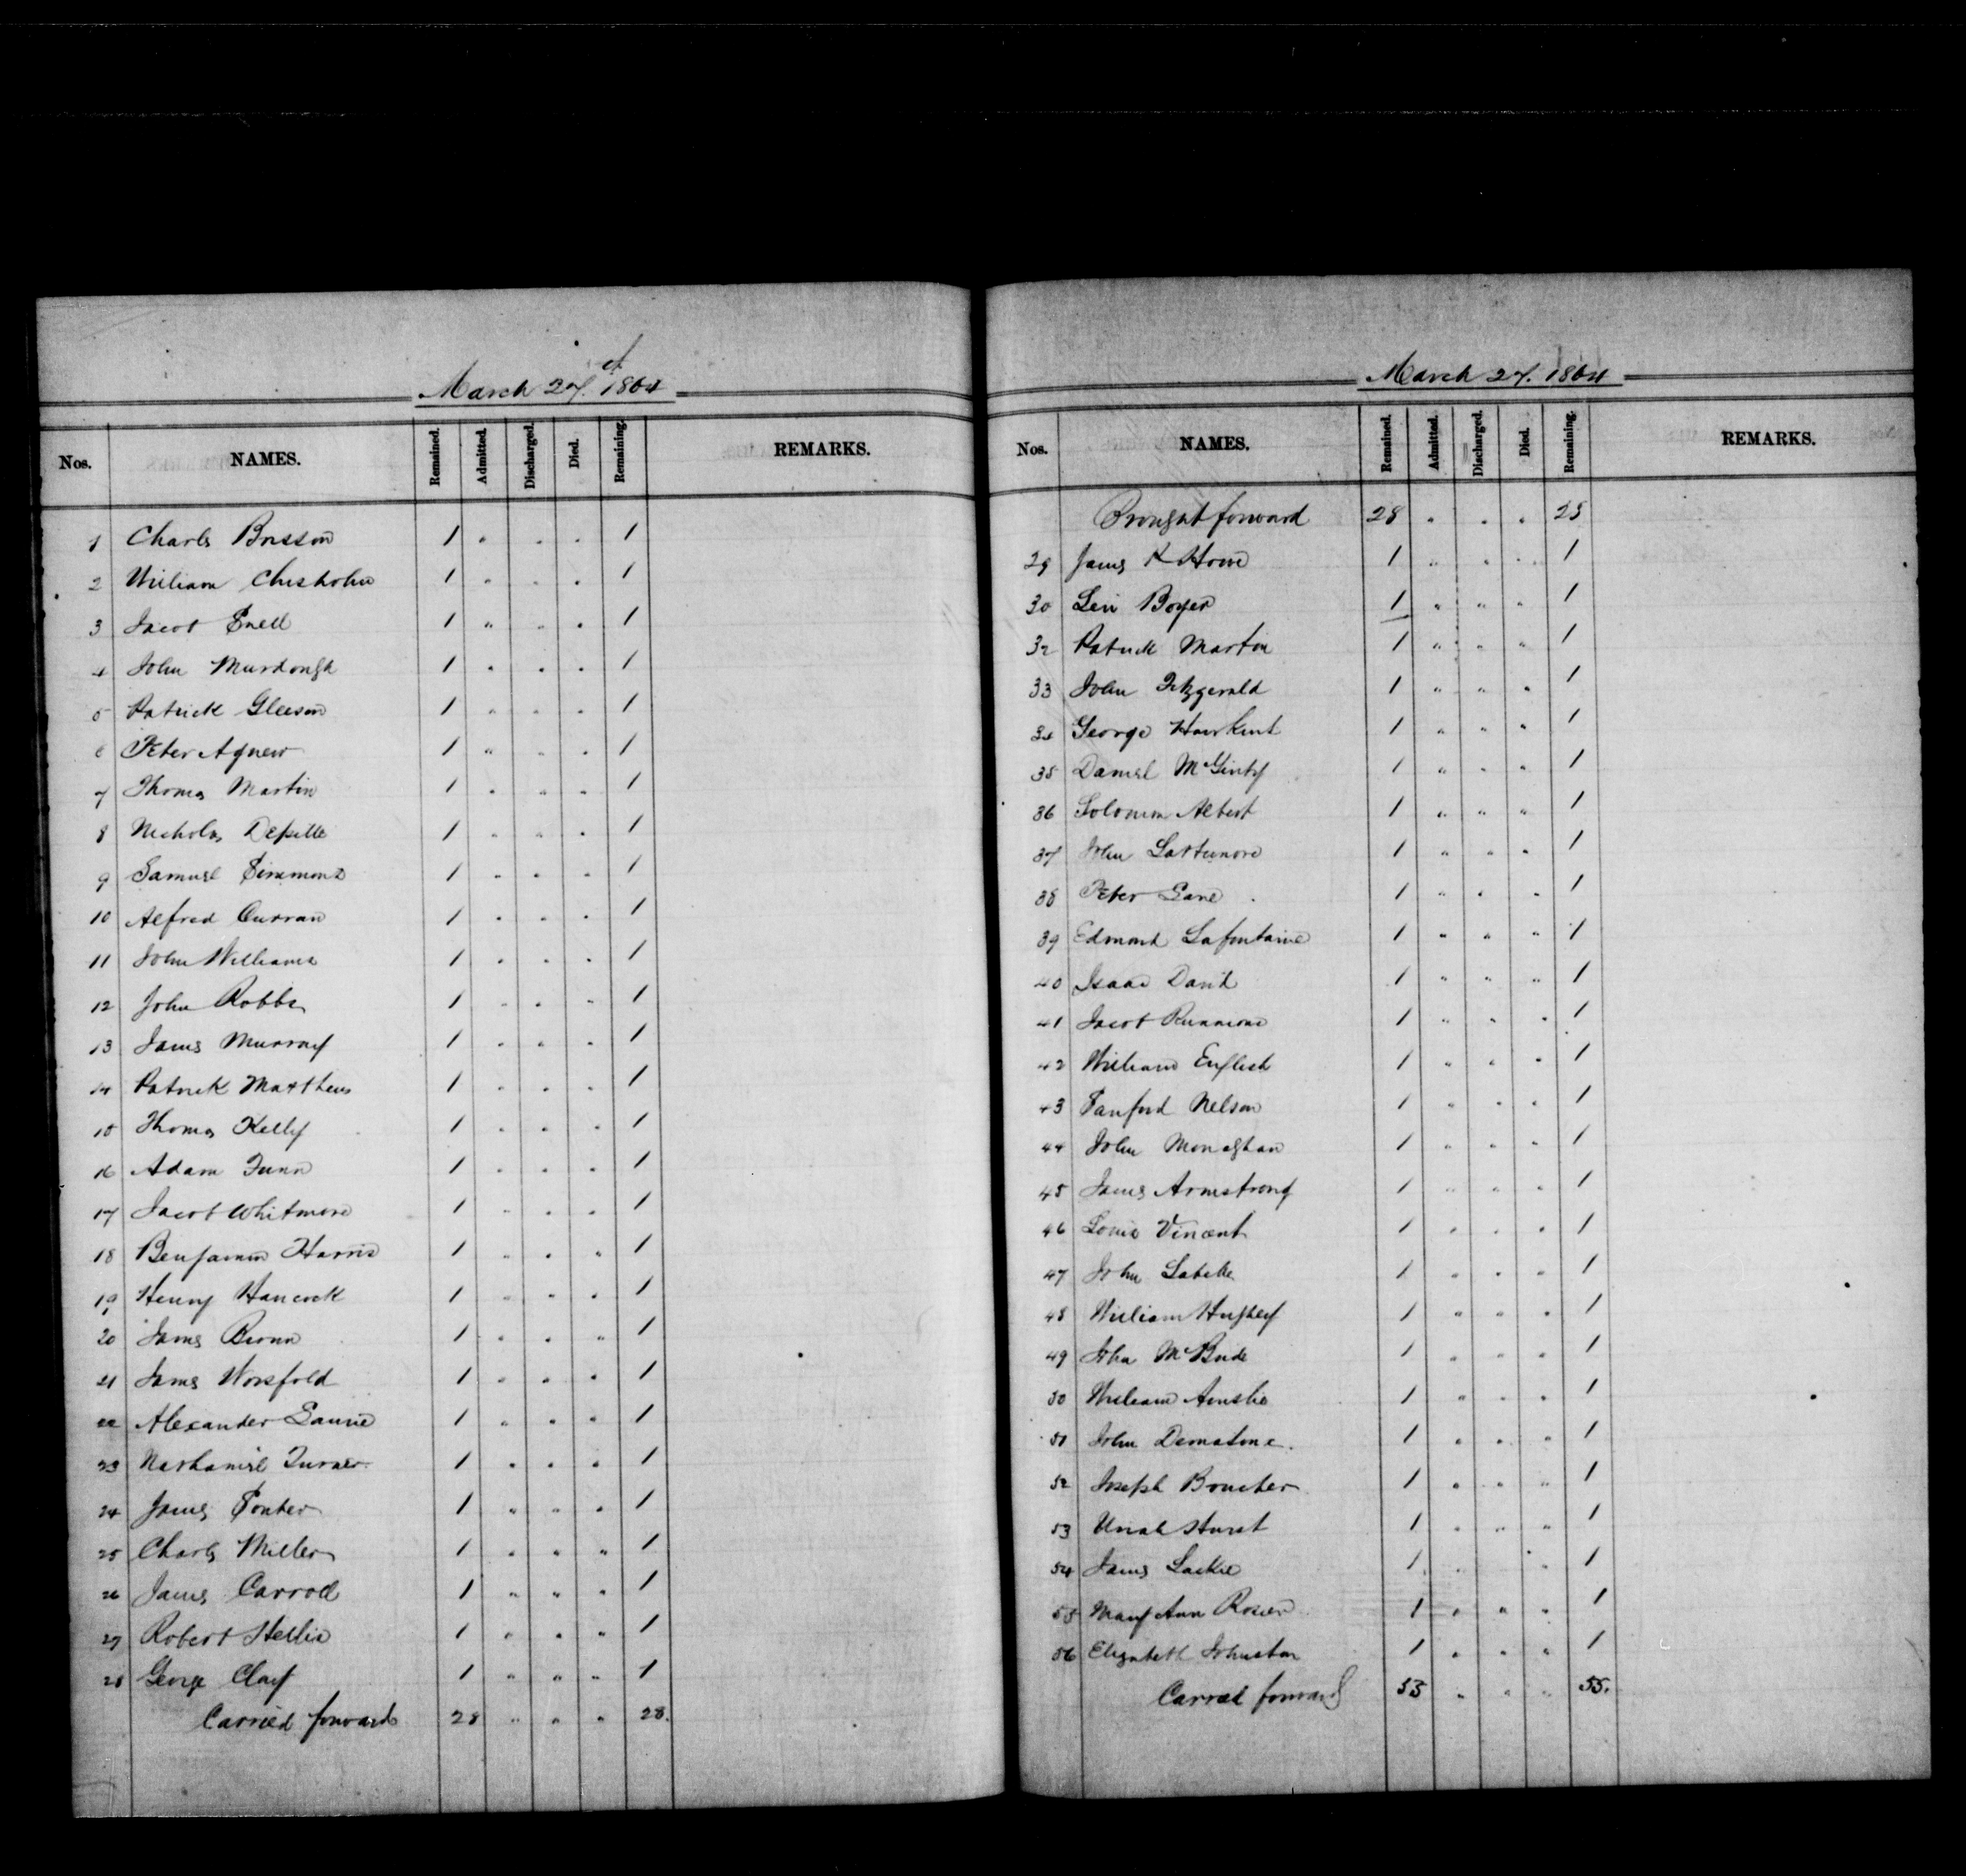 March 27. 1864
Nos. NAMES. Remained. Admitted. Discharged. Died. Remaining. REMARKS.
1 Charles Brisson 1 " " " 1
2 William Chisholm 1 " " " 1
3 Jacob Snell 1 " " " 1
4 John Murdough 1 " " " 1
5 Patrick Gleeson 1 " " " 1
6 Peter Agnew 1 " " " 1
7 Thomas Martin 1 " " " 1
8 Nicholas 1 " " " 1
9 Samuel Simmons 1 " " " 1
10 Alfred Curran 1 " " " 1
11 John Williams 1 " " " 1
12 John Robbs 1 " " " 1
13 James Murray 1 " " " 1
14 Patrick Matthews 1 " " " 1
15 Thomas Kelly 1 " " " 1
16 Adam 1 " " " 1
17 Jacob Whitmore 1 " " " 1
18 Benjamin Harris 1 " " " 1
19 Henry Hancock 1 " " " 1
20 James 1 " " " 1
21 James Worsfold 1 " " " 1
22 Alexander Laurie 1 " " " 1
23 Nathaniel Turner 1 " " " 1
24 James Souter 1 " " " 1
25 Charles Miller 1 " " " 1
26 James Carroll 1 " " " 1
27 Robert Hellis 1 " " " 1
28 George Clay 1 " " " 1
Carried forward 28 " " " 28.
March 27. 1864
Nos. NAMES. Remained. Admitted. Discharged. Died. Remaining. REMARKS.
Brought forward 28 " " " 28
29 James K Howe 1 " " " 1
30 Levi Boyer 1 " " " 1
32 Patrick Martin 1 " " " 1
33 John Fitzgerald 1 " " " 1
34 George 1 " " " 1
35 Daniel McGinty 1 " " " 1
36 Solomon Albert 1 " " " 1
37 John Lattimore 1 " " " 1
38 Peter Lane 1 " " " 1
39 Edmond Lafontaine 1 " " " 1
40 Isaac David 1 " " " 1
41 Jacob 1 " " " 1
42 William English 1 " " " 1
43 Sanford Nelson 1 " " " 1
44 John Monaghan 1 " " " 1
45 James Armstrong 1 " " " 1
46 Louis Vincent 1 " " " 1
47 John Labelle 1 " " " 1
48 William Hughey 1 " " " 1
49 John McBride 1 " " " 1
50 William Ainslie 1 " " " 1
51 John 1 " " " 1
52 Joseph Boucher 1 " " " 1
53 Uriah Hurst 1 " " " 1
54 James Lackie 1 " " " 1
55 Mary Ann 1 " " " 1
56 Elizabeth Johnston 1 " " " 1
Carried forward 55 " " " 55.